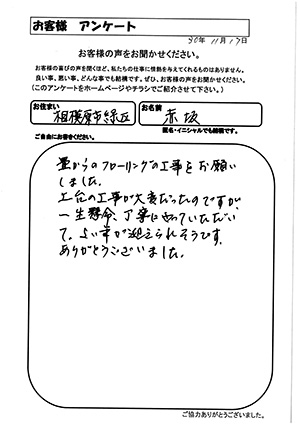 お客様 アンケート
30年 11月 17日
お客様の声をお聞かせください。
お客様の喜びの声を聞くほど、私たちの仕事に情熱を与えてくれるものはありません。
良い事、悪い事、どんな事でも結構です。ぜひ、お客様の声をお聞かせください。
(このアンケートをホームページやチラシでご紹介させて下さい。)
お住まい
相模原市緑区
お名前
赤坂
匿名・イニシャルでも結構です。
ご自由にお書きください。
畳からのフローリングの工事をお願い
しました。
土台の工事が大変だったのですが、
一生懸命、丁寧にやっていただい
て、よい年が迎えられそうです。
ありがとうございました。
ご協力ありがとうございました。